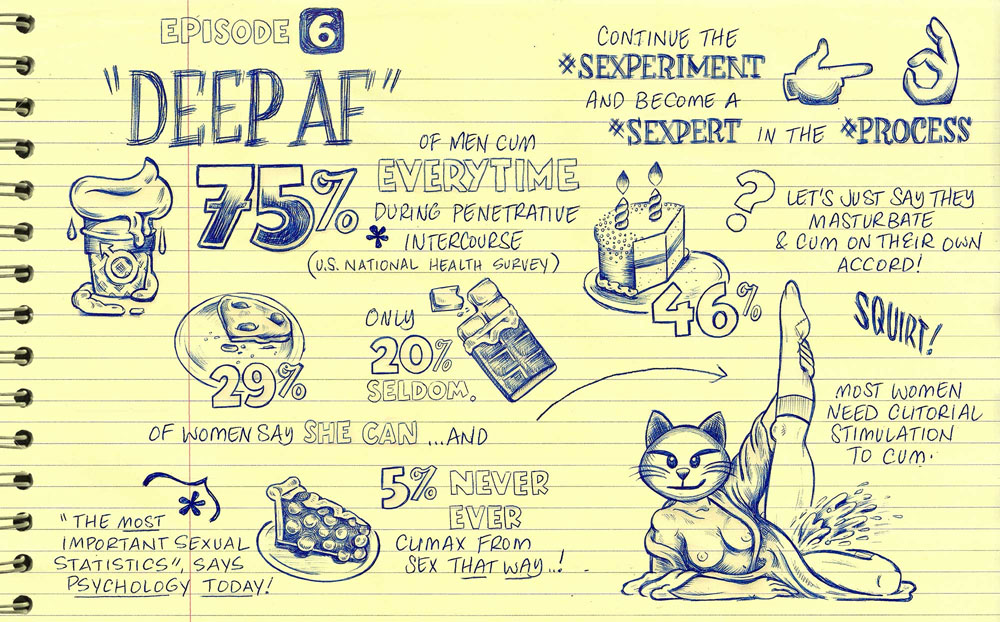 EPISODE 6
"DEEP AF"
CONTINUE THE
*SEXPERIMENT
AND BECOME A
*SEXPERT IN THE *PROCESS
75%
OF MEN CUM
EVERYTIME
DURING PENETRATIVE
* INTERCOURSE
(U.S. NATIONAL HEALTH SURVEY)
46%
?
LET'S JUST SAY THEY
MASTURBATE
& CUM ON THEIR OWN
ACCORD!
29%
ONLY
20%
SELDOM.
OF WOMEN SAY SHE CAN ...AND
SQUIRT!
MOST WOMEN
NEED CLITORIAL
STIMULATION
TO CUM.
*
"THE MOST
IMPORTANT SEXUAL
STATISTICS", SAYS
PSYCHOLOGY TODAY!
5% NEVER
EVER
CLIMAX FROM
SEX THAT WAY..!